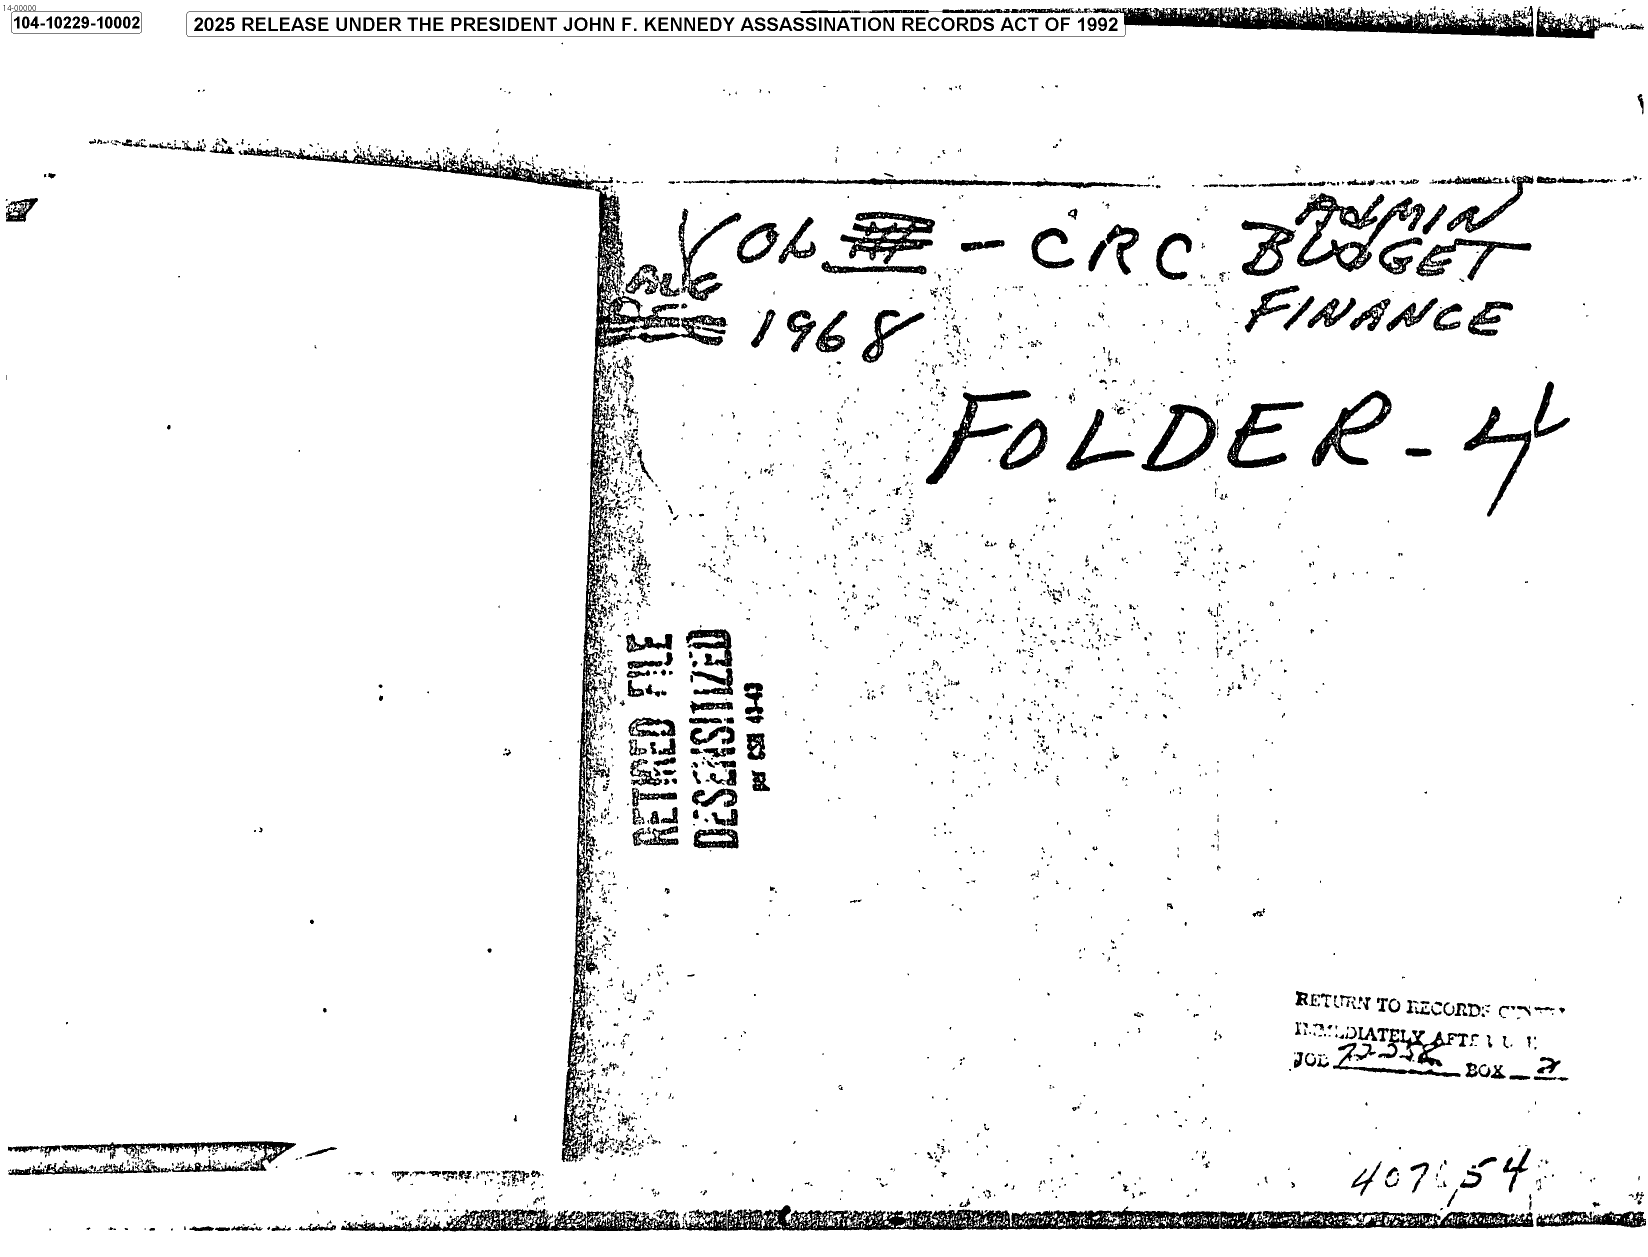 14-00000
104-10229-10002
2025 RELEASE UNDER THE PRESIDENT JOHN F. KENNEDY ASSASSINATION RECORDS ACT OF 1992
VOL - CRC ADMIN
BUDGET
FINANCE
1968
FOLDER - 4
RETIRED FILE
DESENSITIZED
per CSN 43-43
RETURN TO RECORDS
IMMEDIATELY AFTER
JOB BOX
407 54